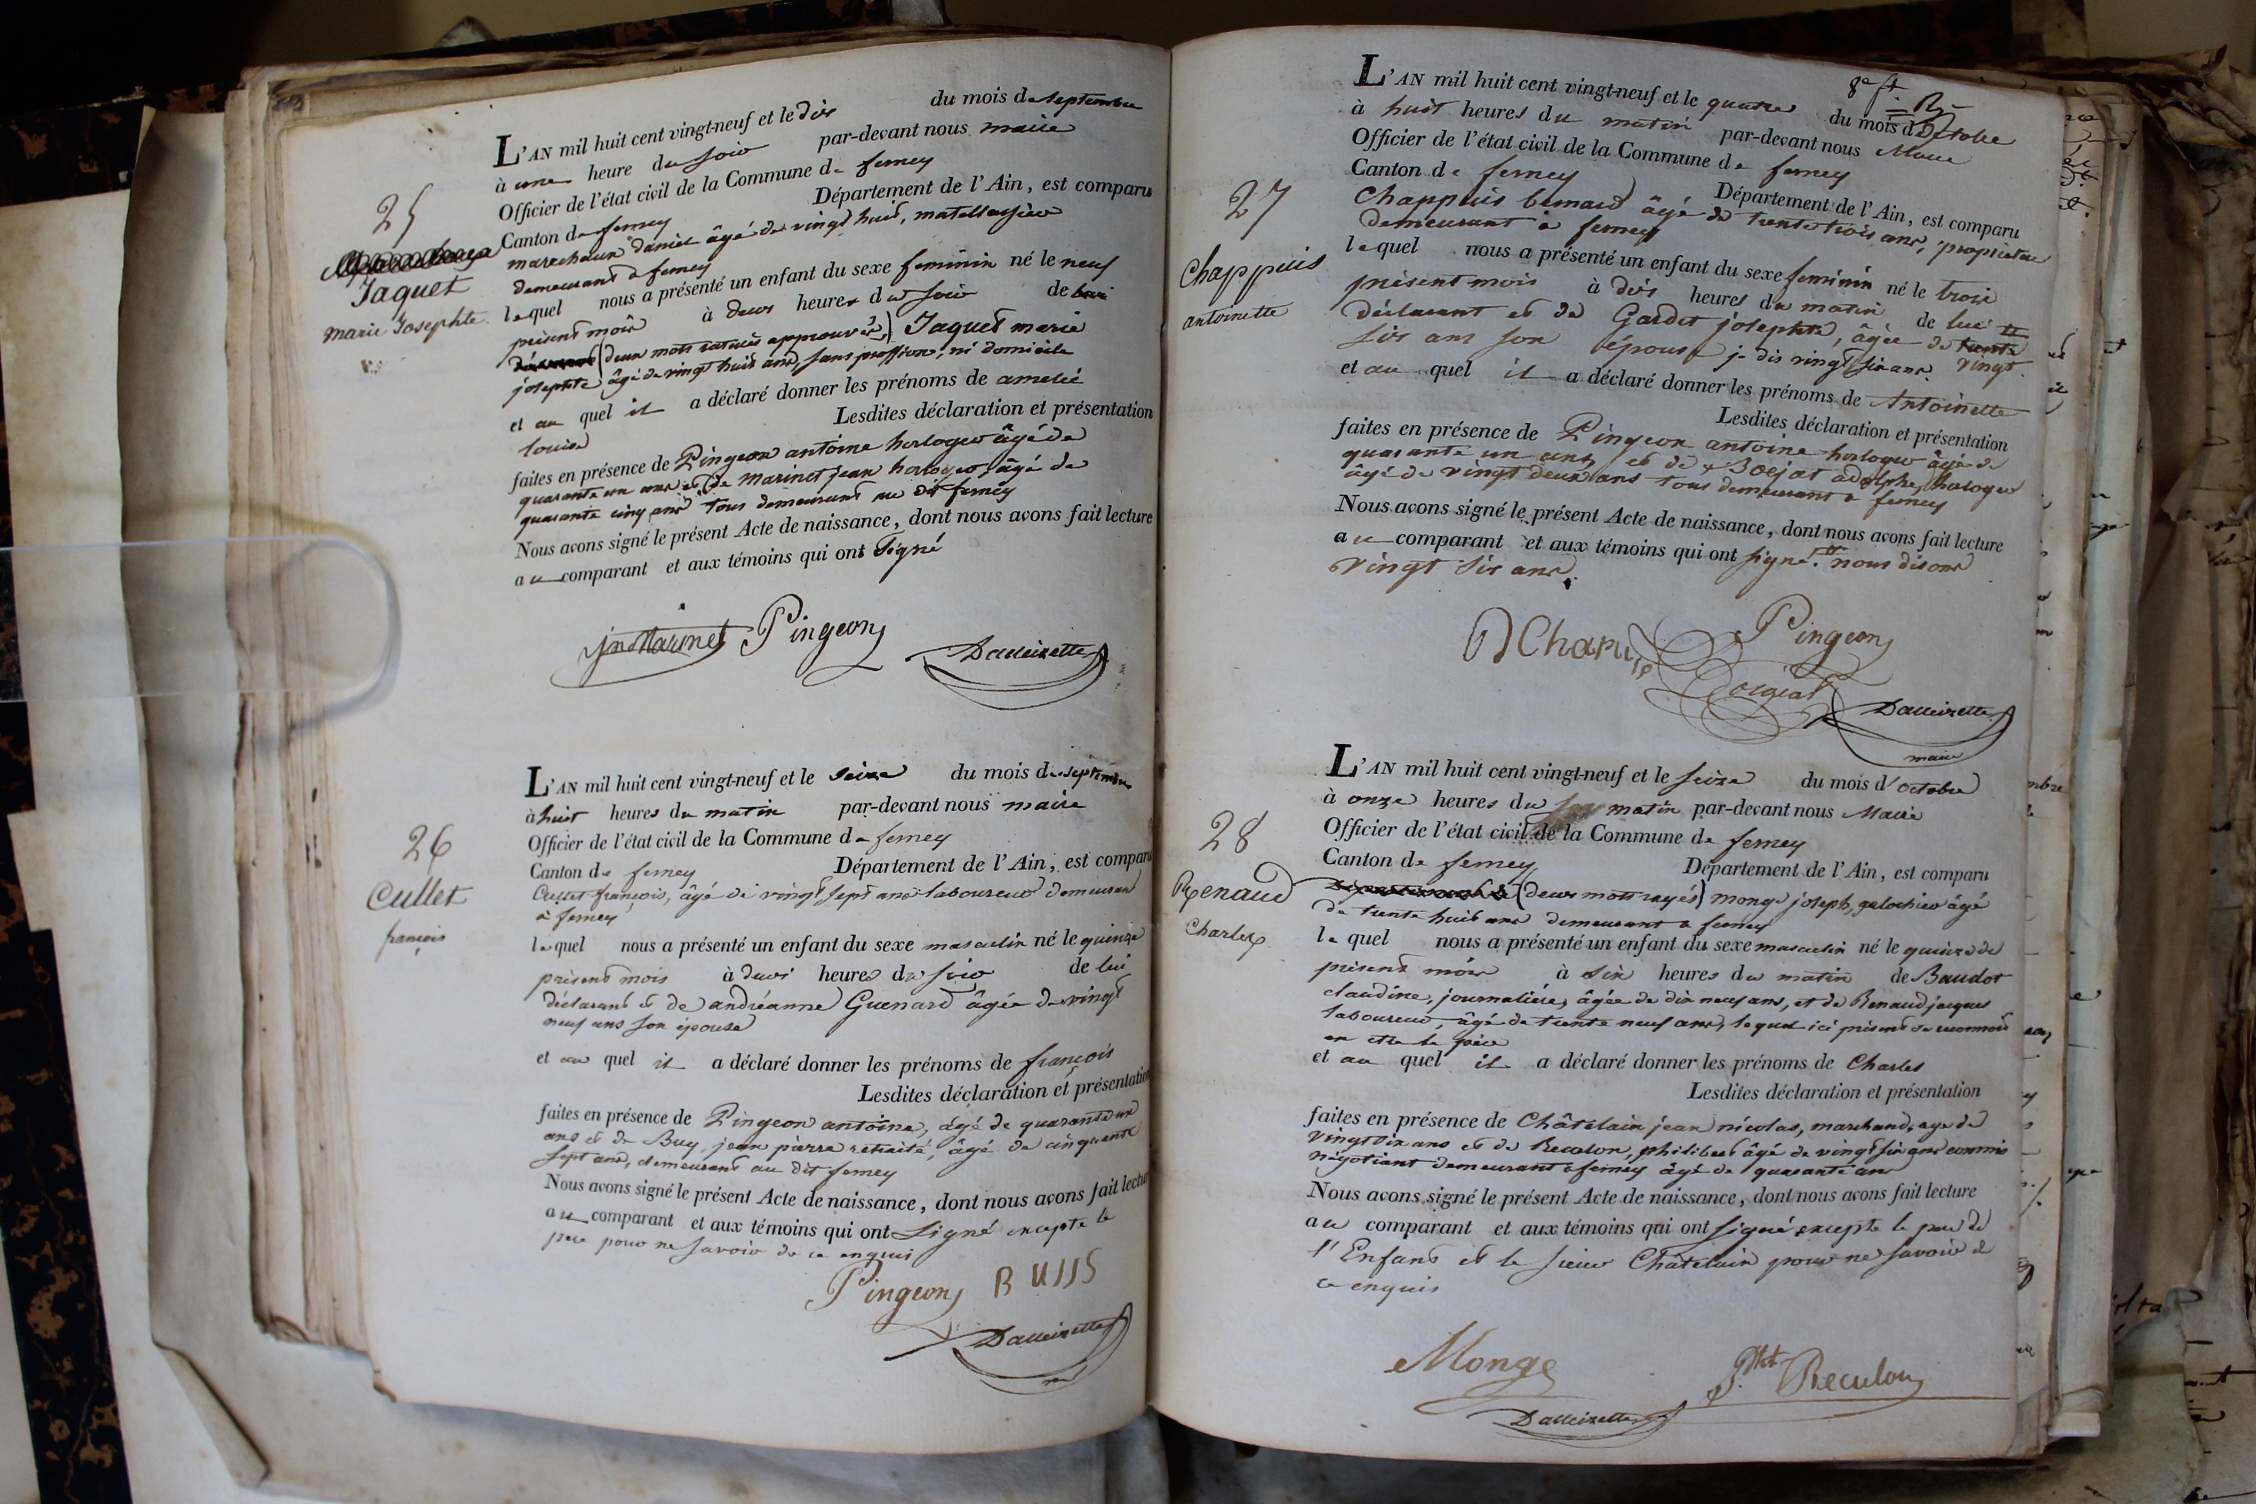 25
Jaquet
marie Josephte
L'AN mil huit cent vingt-neuf et le dix du mois de septembre
à une heure du soir par-devant nous maire
Officier de l'état civil de la Commune de ferney
Canton de ferney Département de l'Ain, est comparu
marechaux daniel âgé de vingt huit, matellassier
demeurant à ferney
lequel nous a présenté un enfant du sexe feminin né le neuf
présent mois à deux heures du soir de
(deux mots raturés approuvés) Jaquet marie
josephte âgé de vingt huit ans, sans proffession, ni domicile
et au quel il a déclaré donner les prénoms de amelié
louise Lesdites déclaration et présentation
faites en présence de Pingeon antoine horloger âgé de
quarante un ans et de marinet jean horloger âgé de
quarante cinq ans tous demeurant au dit ferney
Nous avons signé le présent Acte de naissance, dont nous avons fait lecture
au comparant et aux témoins qui ont signé
jn Marinet Pingeon
26
Cullet
françois
L'AN mil huit cent vingt-neuf et le seize du mois de septembre
à huit heures du matin par-devant nous maire
Officier de l'état civil de la Commune de ferney
Canton de ferney Département de l'Ain, est comparu
Cullet françois, âgé de vingt sept ans laboureur demeurant
à ferney
lequel nous a présenté un enfant du sexe masculin né le quinze
présent mois à deux heures du soir de lui
déclarant et de andréanne Guenard âgée de vingt
neuf ans son épouse
et au quel il a déclaré donner les prénoms de françois
Lesdites déclaration et présentation
faites en présence de Pingeon antoine, âgé de quarante un
ans et de Buy jean pierre retraité, âgé de cinquante
sept ans, demeurant au dit ferney
Nous avons signé le présent Acte de naissance, dont nous avons fait lecture
au comparant et aux témoins qui ont signé excepte le
père pour ne savoir de ce enquis
Pingeon
27
Chappuis
antoinette
L'AN mil huit cent vingt-neuf et le quatre du mois d'Octobre
à huit heures du matin par-devant nous Maire
Officier de l'état civil de la Commune de ferney
Canton de ferney Département de l'Ain, est comparu
Chappuis bernard âgé de trente trois ans, propriétaire
demeurant à ferney
lequel nous a présenté un enfant du sexe feminin né le trois
présent mois à dix heures du matin de lui
déclarant et de Gardet josephte, âgée de trente
six ans son épouse je dis vingt six ans vingt
et au quel il a déclaré donner les prénoms de Antoinette
Lesdites déclaration et présentation
faites en présence de Pingeon antoine horloger âgé de
quarante un ans, et de Borjat adolphe, horloger
âgé de vingt deux ans tous demeurant à ferney
Nous avons signé le présent Acte de naissance, dont nous avons fait lecture
au comparant et aux témoins qui ont signé. nous disons
vingt six ans.
Pingeon
maire
28
Renaud
Charles
L'AN mil huit cent vingt-neuf et le seize du mois d'octobre
à onze heures du matin par-devant nous Maire
Officier de l'état civil de la Commune de ferney
Canton de ferney Département de l'Ain, est comparu
(deux mots rayés) monge joseph, galochier âgé
de trente huit ans demeurant à ferney
lequel nous a présenté un enfant du sexe masculin né le quinze de
présent mois à six heures du matin de Baudot
claudine, journalière, âgée de dix neuf ans, et de Renaud jacques
laboureur, âgé de trente neuf ans, lequel ici présent se reconnoit
en être le père
et au quel il a déclaré donner les prénoms de Charles
Lesdites déclaration et présentation
faites en présence de Châtelain jean nicolas, marchand, age de
vingt six ans et de Reculon, philibert âgé de vingt six ans commis
négotiant demeurant à ferney âgé de quarante ans
Nous avons signé le présent Acte de naissance, dont nous avons fait lecture
au comparant et aux témoins qui ont signé excepte le père de
l'Enfant et le sieur Châtelain pour ne savoir de
ce enquis
Monge
Reculon